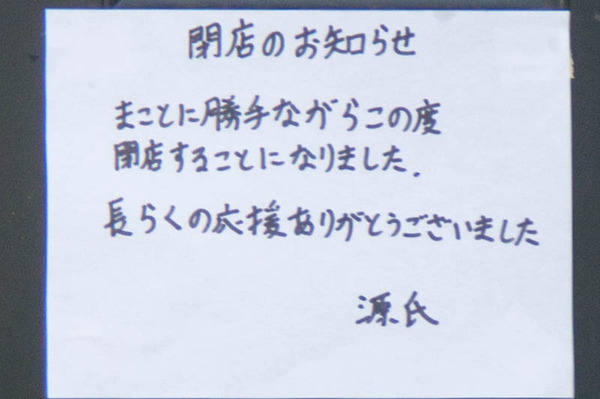 閉店のお知らせ
まことに勝手ながらこの度
閉店することになりました.
長らくの応援ありがとうございました
源氏